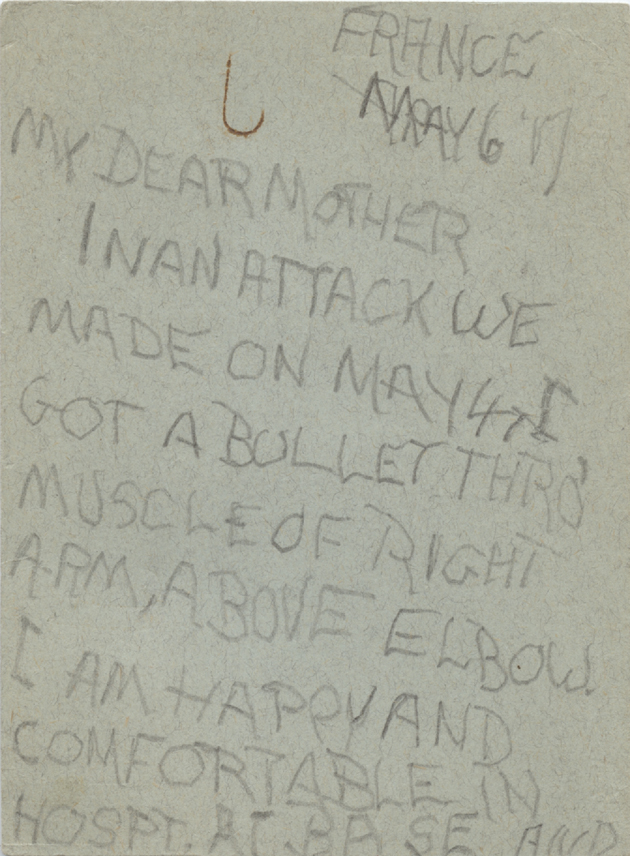 FRANCE
MAY 6 '17
MY DEAR MOTHER
IN AN ATTACK WE
MADE ON MAY 4TH I
GOT A BULLET THRO'
MUSCLE OF RIGHT
ARM, ABOVE ELBOW.
I AM HAPPY AND
COMFORTABLE IN
HOSPT. AT. BASE AND